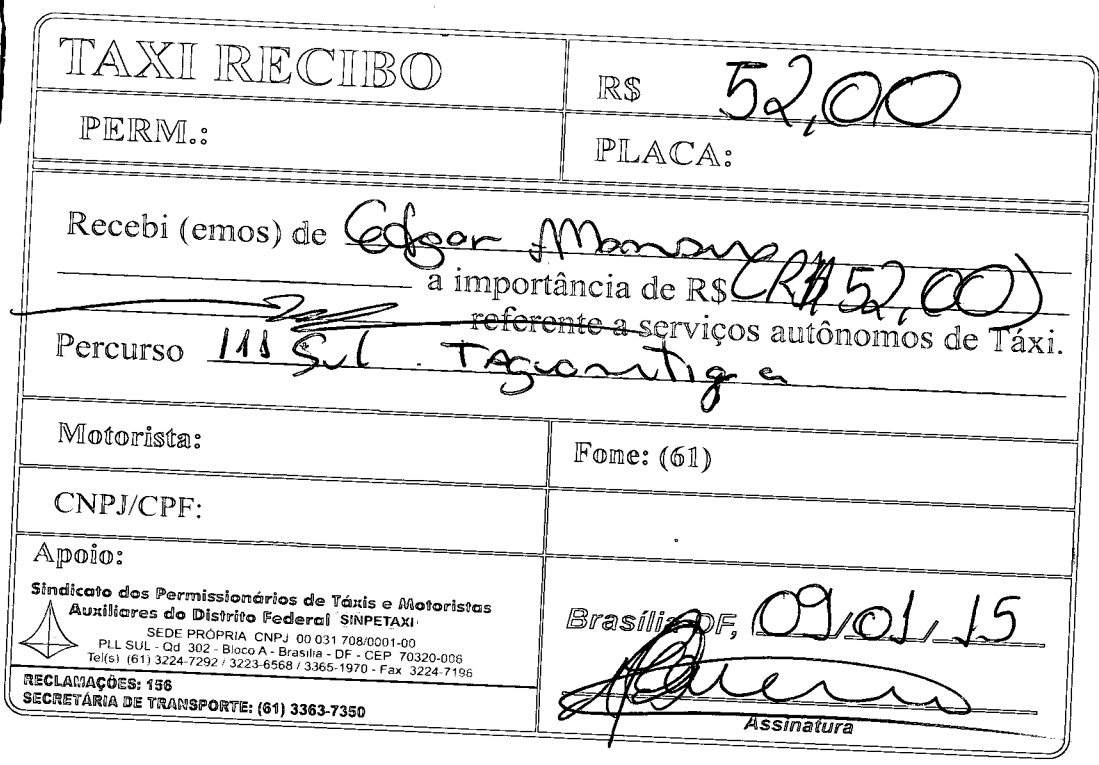 TAXI RECIBO
R$ 52,00
PERM.:
PLACA:
Recebi (emos) de Edgar
a importância de R$ (R$ 52,00)
referente a serviços autônomos de Táxi.
Percurso 111 Sul . Taguatinga
Motorista:
Fone: (61)
CNPJ/CPF:
Apoio:
Sindicato dos Permissionários de Táxis e Motoristas
Auxiliares do Distrito Federal SINPETAXI
SEDE PRÓPRIA CNPJ 00 031 708/0001-00
PLL SUL - Qd 302 - Bloco A - Brasília - DF - CEP 70320-006
Tel(s) (61) 3224-7292 / 3223-6568 / 3365-1970 - Fax 3224-7196
RECLAMAÇÕES: 156
SECRETÁRIA DE TRANSPORTE: (61) 3363-7350
Brasília-DF, 09/01/15
Assinatura